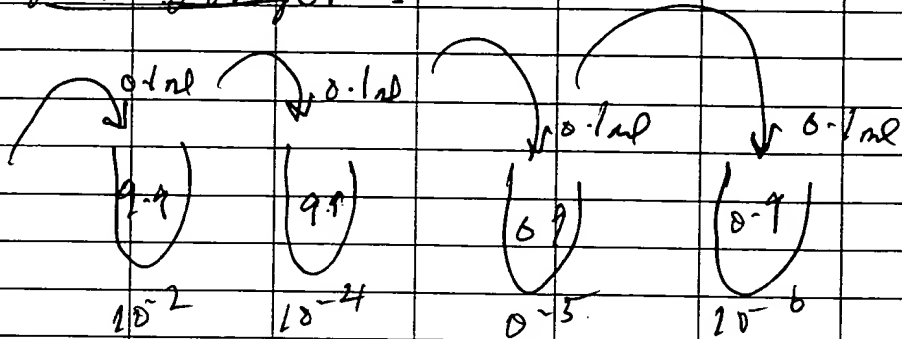 0.1ml 0.1ml 0.1ml 0.1ml
9.9 9.9 0.9 0.9
10-2 10-4 0-5 10-6